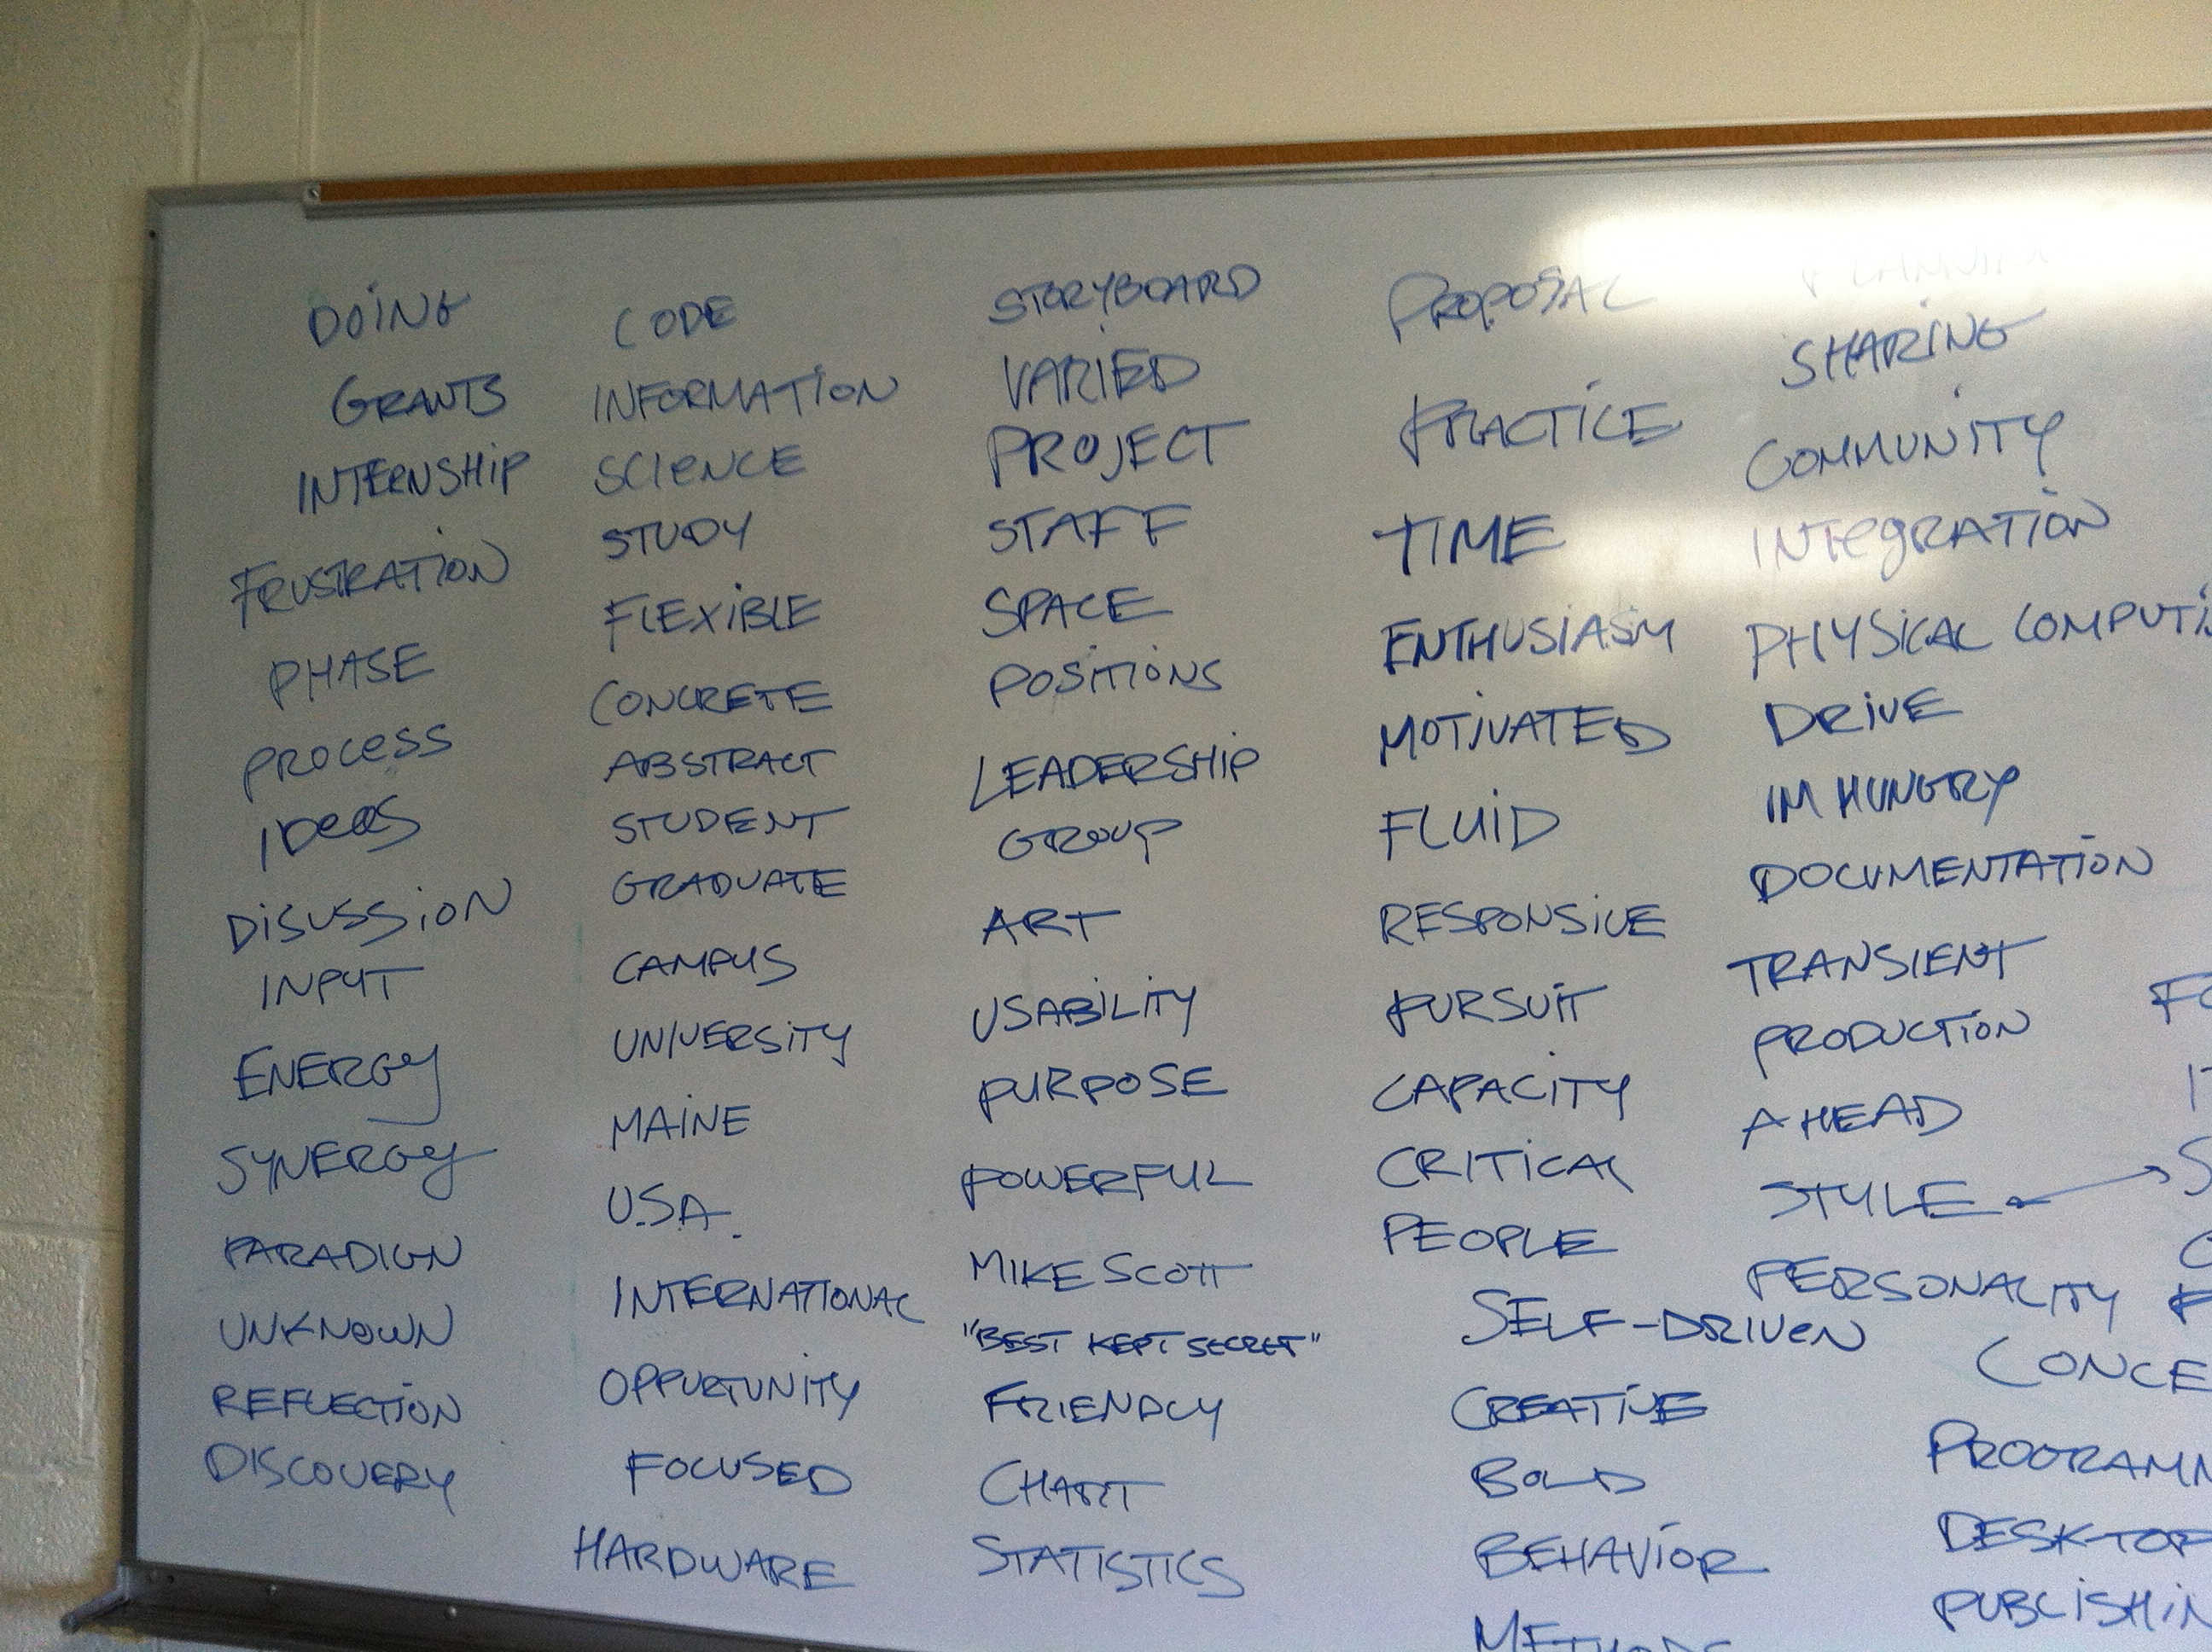 DOING
GRANTS
INTERNSHIP
FRUSTRATION
PHASE
PROCESS
IDEAS
DISUSSION
INPUT
ENERGY
SYNERGY
PARADIGN
UNKNOWN
REFLECTION
DISCOVERY
CODE
INFORMATION
SCIENCE
STUDY
FLEXIBLE
CONCRETE
ABSTRACT
STUDENT
GRADUATE
CAMPUS
UNIVERSITY
MAINE
U.S.A.
INTERNATIONAL
OPPURTUNITY
FOCUSED
HARDWARE
STORYBOARD
VARIED
PROJECT
STAFF
SPACE
POSITIONS
LEADERSHIP
GROUP
ART
USABILITY
PURPOSE
POWERFUL
MIKE SCOTT
"BEST KEPT SECRET"
FRIENDLY
CHART
STATISTICS
PROPOSAL
PRACTICE
TIME
ENTHUSIASM
MOTIVATED
FLUID
RESPONSIVE
PURSUIT
CAPACITY
CRITICAL
PEOPLE
SELF-DRIVEN
CREATIVE
BOLD
BEHAVIOR
METHODS
SHARING
COMMUNITY
INTEGRATION
PHYSICAL COMPUTI
DRIVE
IM HUNGRY
DOCUMENTATION
TRANSIENT
PRODUCTION
AHEAD
STYLE
PERSONALITY
CONCE
PROGRAMM
DESKTOP
PUBLISHIN